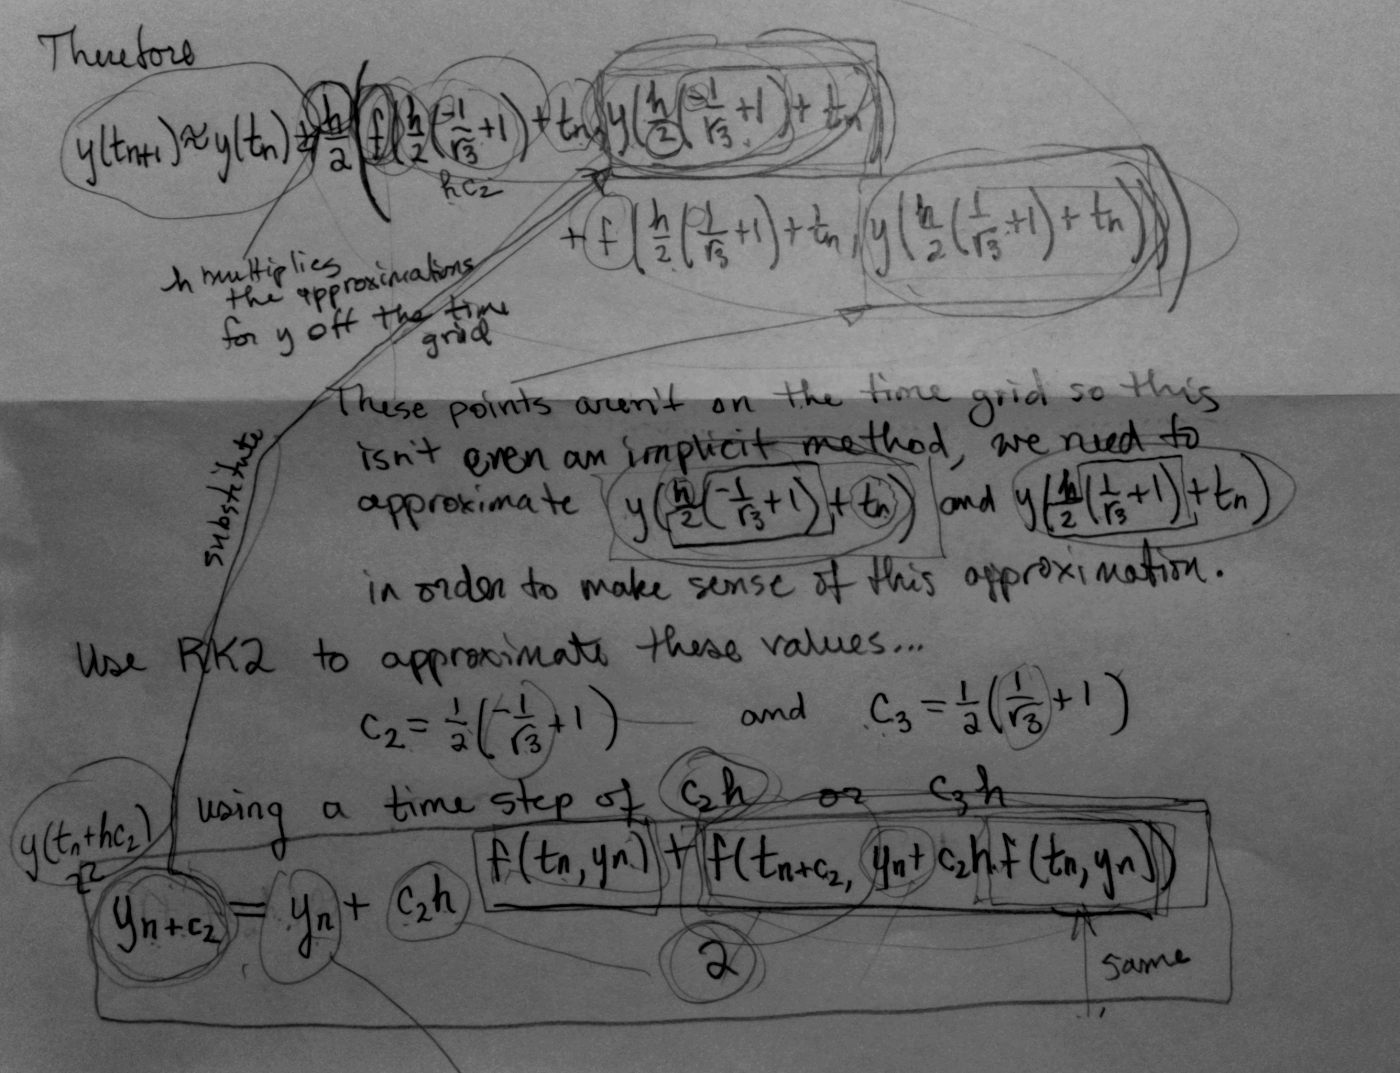 Therefore
y(tn+1) ≈ y(tn) + h/2 ( f( h/2 ( -1/√3 + 1 ) + tn, y( h/2 ( -1/√3 + 1 ) + tn ) )
hc2
+ f ( h/2 ( 1/√3 + 1 ) + tn, y( h/2 ( 1/√3 + 1 ) + tn ) ) )
h multiplies
the approximations
for y off the time
grid
These points aren't on the time grid so this
isn't even an implicit method, we need to
approximate y( h/2 ( -1/√3 + 1 ) + tn ) and y( h/2 ( 1/√3 + 1 ) + tn )
substitute
in order to make sense of this approximation.
Use RK2 to approximate these values...
c2 = 1/2 ( -1/√3 + 1 ) and c3 = 1/2 ( 1/√3 + 1 )
using a time step of c2h or c3h
y(tn+hc2)
≈
yn+c2 = yn + c2h f(tn, yn) + f(tn+c2, yn + c2h f(tn, yn))
2
same